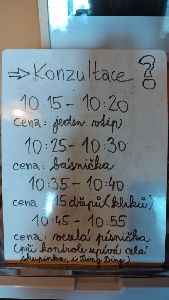 ⇒ Konzultace ?
10:15 - 10:20
cena: jeden vtip
10:25 - 10:30
cena: básnička
10:35 - 10:40
cena 15 dřepů (kliků)
10:45 - 10:55
cena: veselá písnička
(při kontrole zpívá celá
skupinka, i Jung Ding)